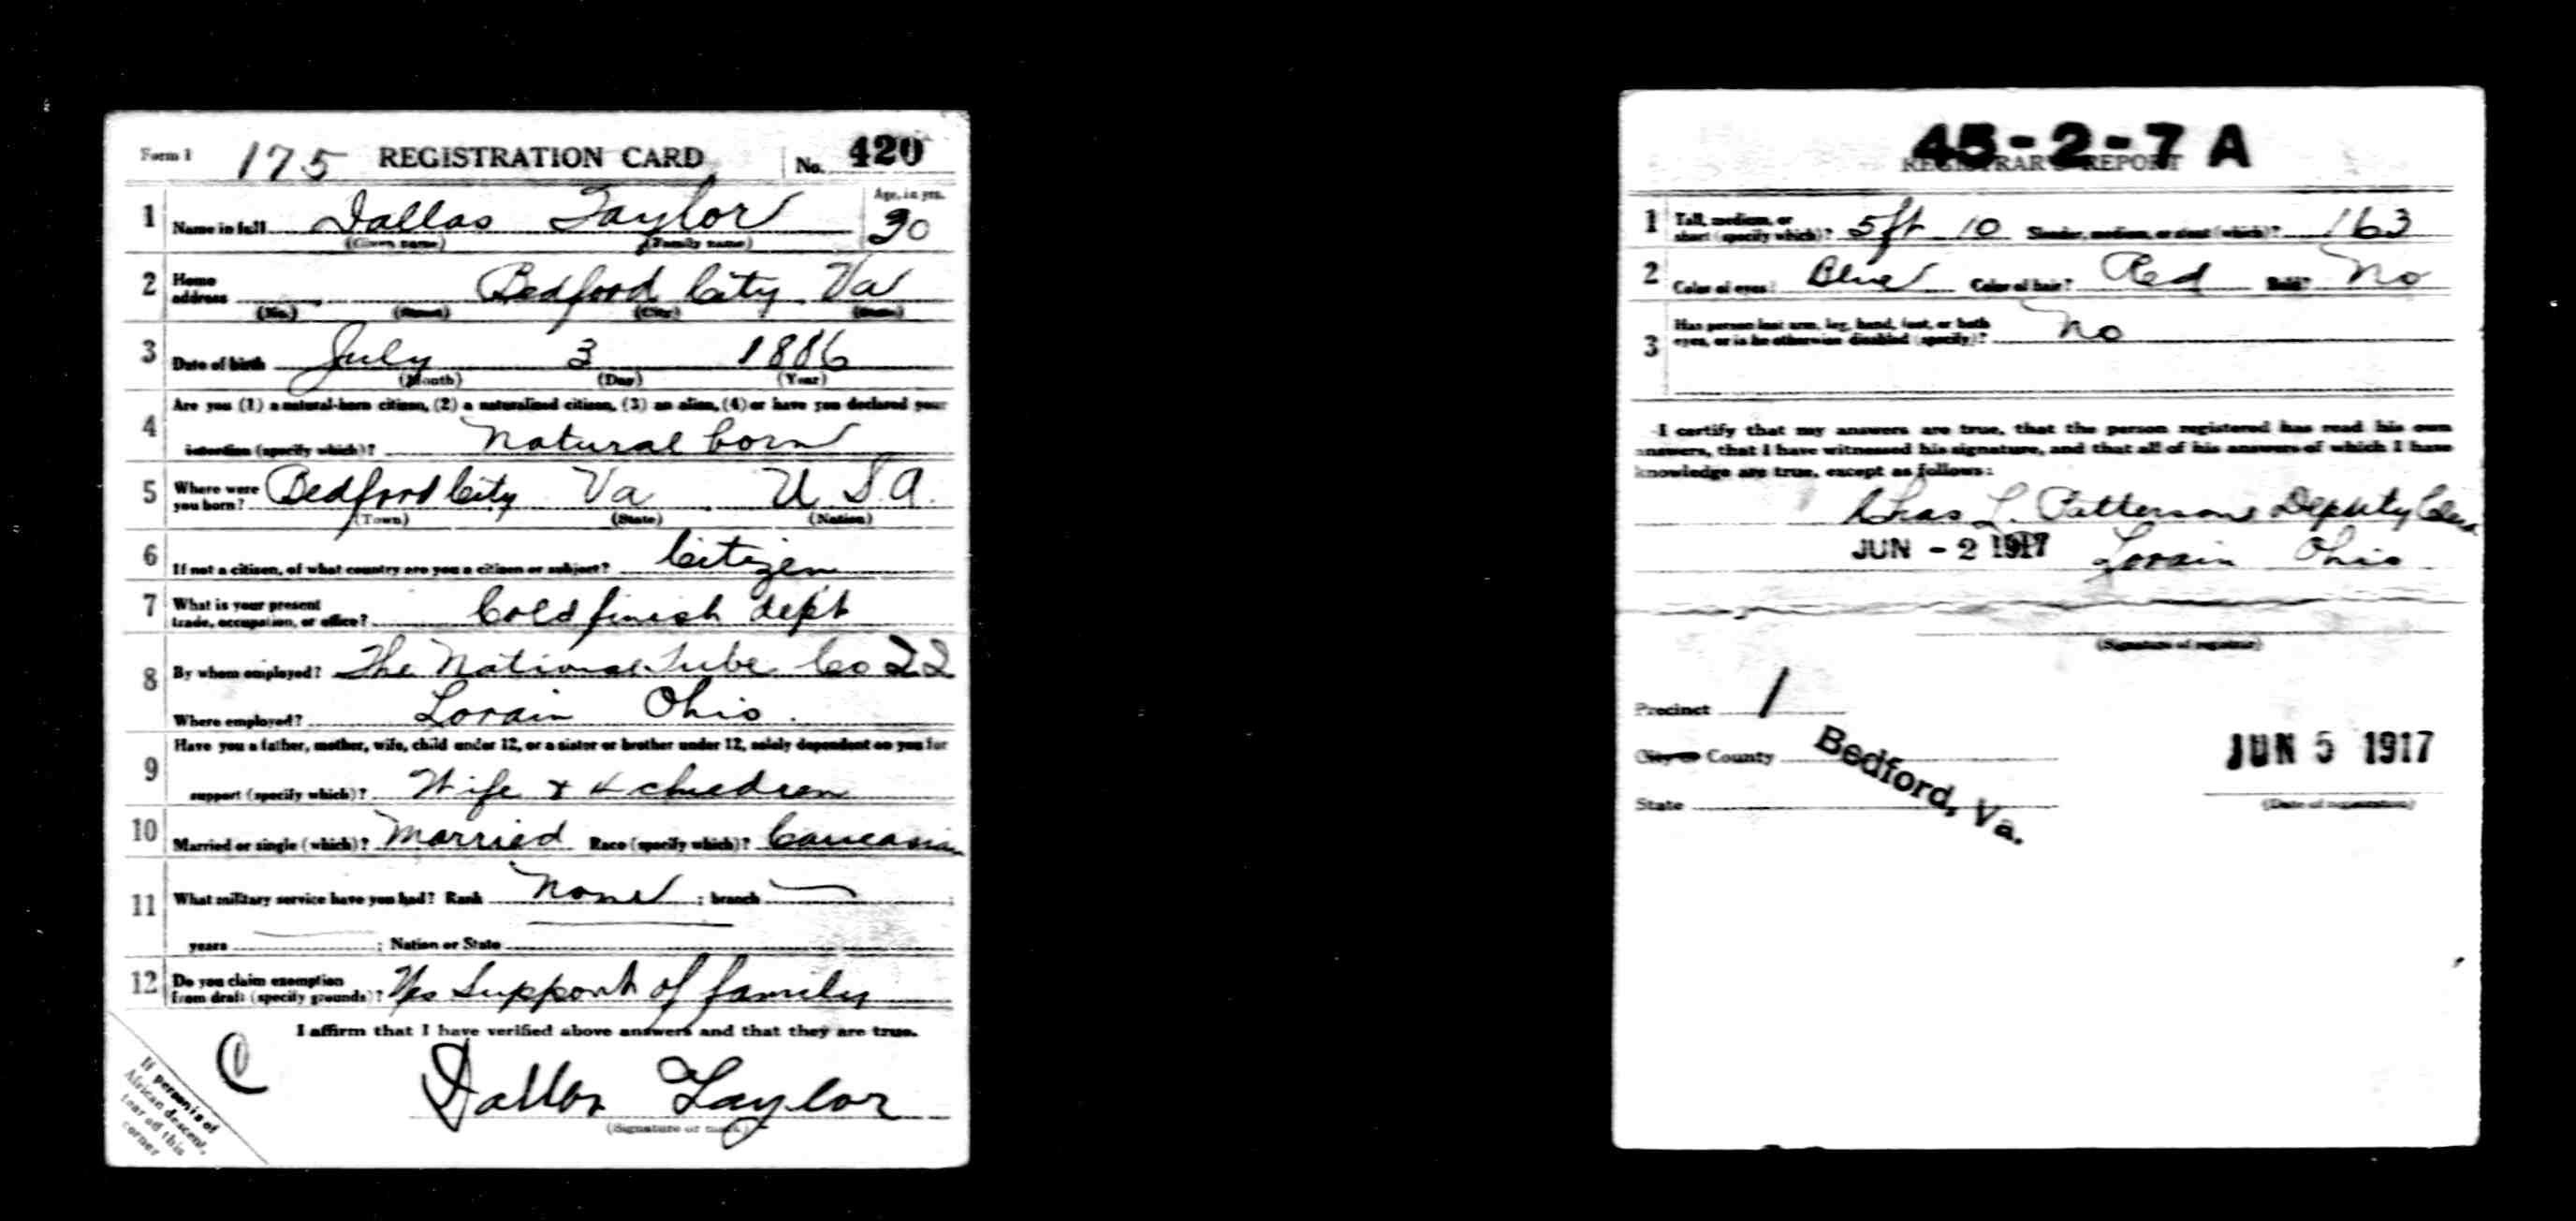 Form 1 175 REGISTRATION CARD No. 420
1 Name in full Dallas Taylor Age, in yrs. 30
(Given name) (Family name)
2 Home address Bedford City Va
(No.) (Street) (City) (State)
3 Date of birth July 3 1886
(Month) (Day) (Year)
Are you (1) a natural-born citizen, (2) a naturalized citizen, (3) an alien, (4) or have you declared your
4 intention (specify which)? Natural born
5 Where were you born? Bedford City Va U S A.
(Town) (State) (Nation)
6 If not a citizen, of what country are you a citizen or subject? Citizen
7 What is your present trade, occupation, or office? Cold finish dept
8 By whom employed? The National Tube Co 22
Where employed? Lorain Ohio.
9 Have you a father, mother, wife, child under 12, or a sister or brother under 12, solely dependent on you for
support (specify which)? Wife & 4 children
10 Married or single (which)? Married Race (specify which)? Caucasian
11 What military service have you had? Rank None ; branch ;
years ; Nation or State
12 Do you claim exemption from draft (specify grounds)? Yes Support of family
I affirm that I have verified above answers and that they are true.
Dallas Taylor
(Signature or mark)
If person is of
African descent,
tear off this
corner
45-2-7 A
REGISTRAR'S REPORT
1 Tall, medium, or short (specify which)? 5 ft 10 Slender, medium, or stout (which)? 163
2 Color of eyes? Blue Color of hair? Red Bald? No
3 Has person lost arm, leg, hand, foot, or both
eyes, or is he otherwise disabled (specify)? No
I certify that my answers are true, that the person registered has read his own
answers, that I have witnessed his signature, and that all of his answers of which I have
knowledge are true, except as follows:
Chas L. Patterson Deputy Clerk
JUN - 2 1917 Lorain Ohio
(Signature of registrar)
Precinct 1
City or County Bedford, Va.
JUN 5 1917
State
(Date of registration)